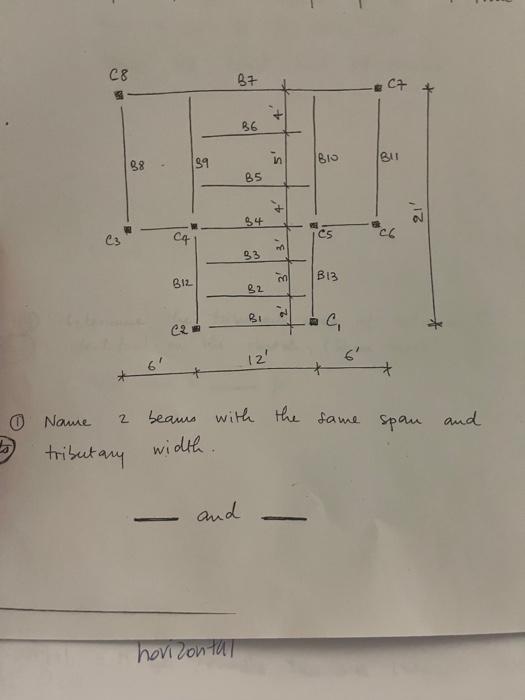 C8 B7 C7
4'
B6
B8 B9 5' B10 B11
B5
4' 21'
B4
C3 C4 C5 C6
3'
B3
B12 3' B13
B2
2'
C2 B1 C1
6' 12' 6'
① Name 2 beams with the same span and
tributary width.
— and —
horizontal